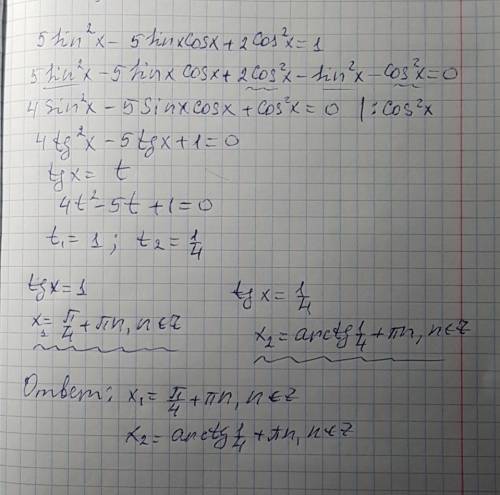 5sin²x - 5sinxcosx + 2cos²x = 1
5sin²x - 5sinx cosx + 2cos²x - sin²x - cos²x = 0
4sin²x - 5sinxcosx + cos²x = 0 | : cos²x
4tg²x - 5tgx + 1 = 0
tgx = t
4t² - 5t + 1 = 0
t₁ = 1 ; t₂ = 1/4
tgx = 1 tgx = 1/4
x₁ = π/4 + πn, n ∈ Z x₂ = arctg 1/4 + πn, n ∈ Z
Ответ: x₁ = π/4 + πn, n ∈ Z
x₂ = arctg 1/4 + πn, n ∈ Z